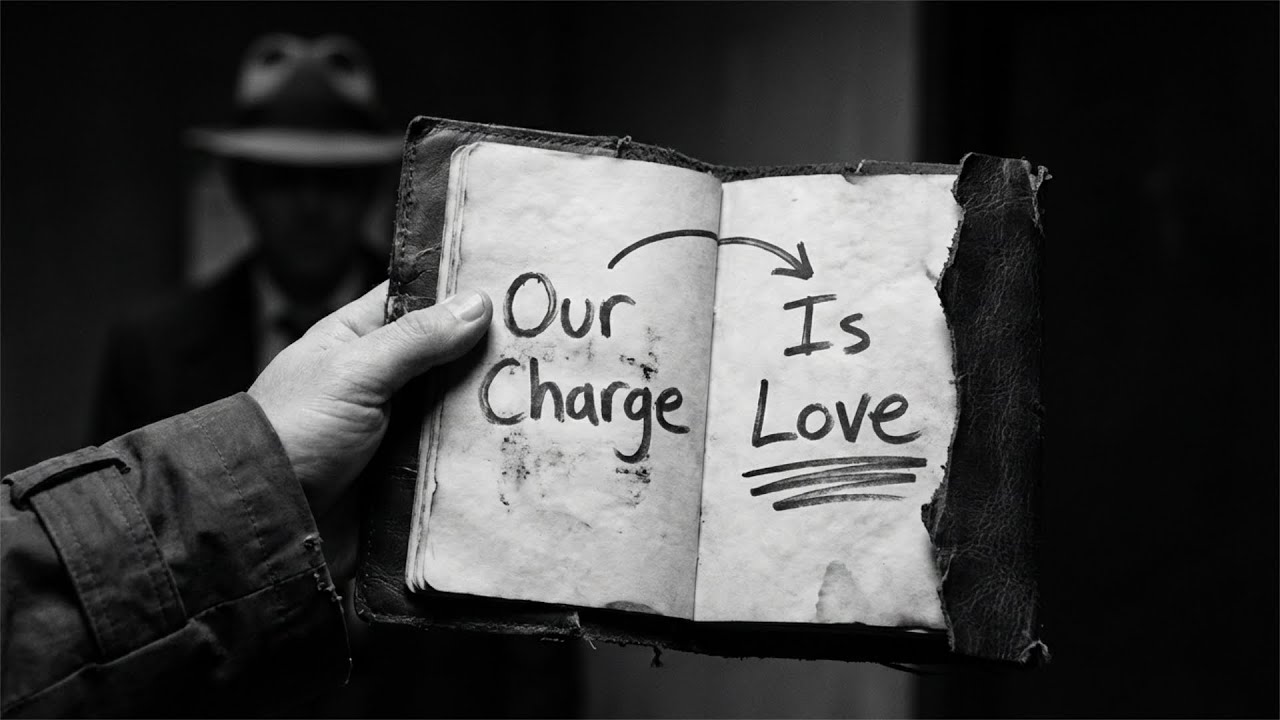 Our
Charge
Is
Love